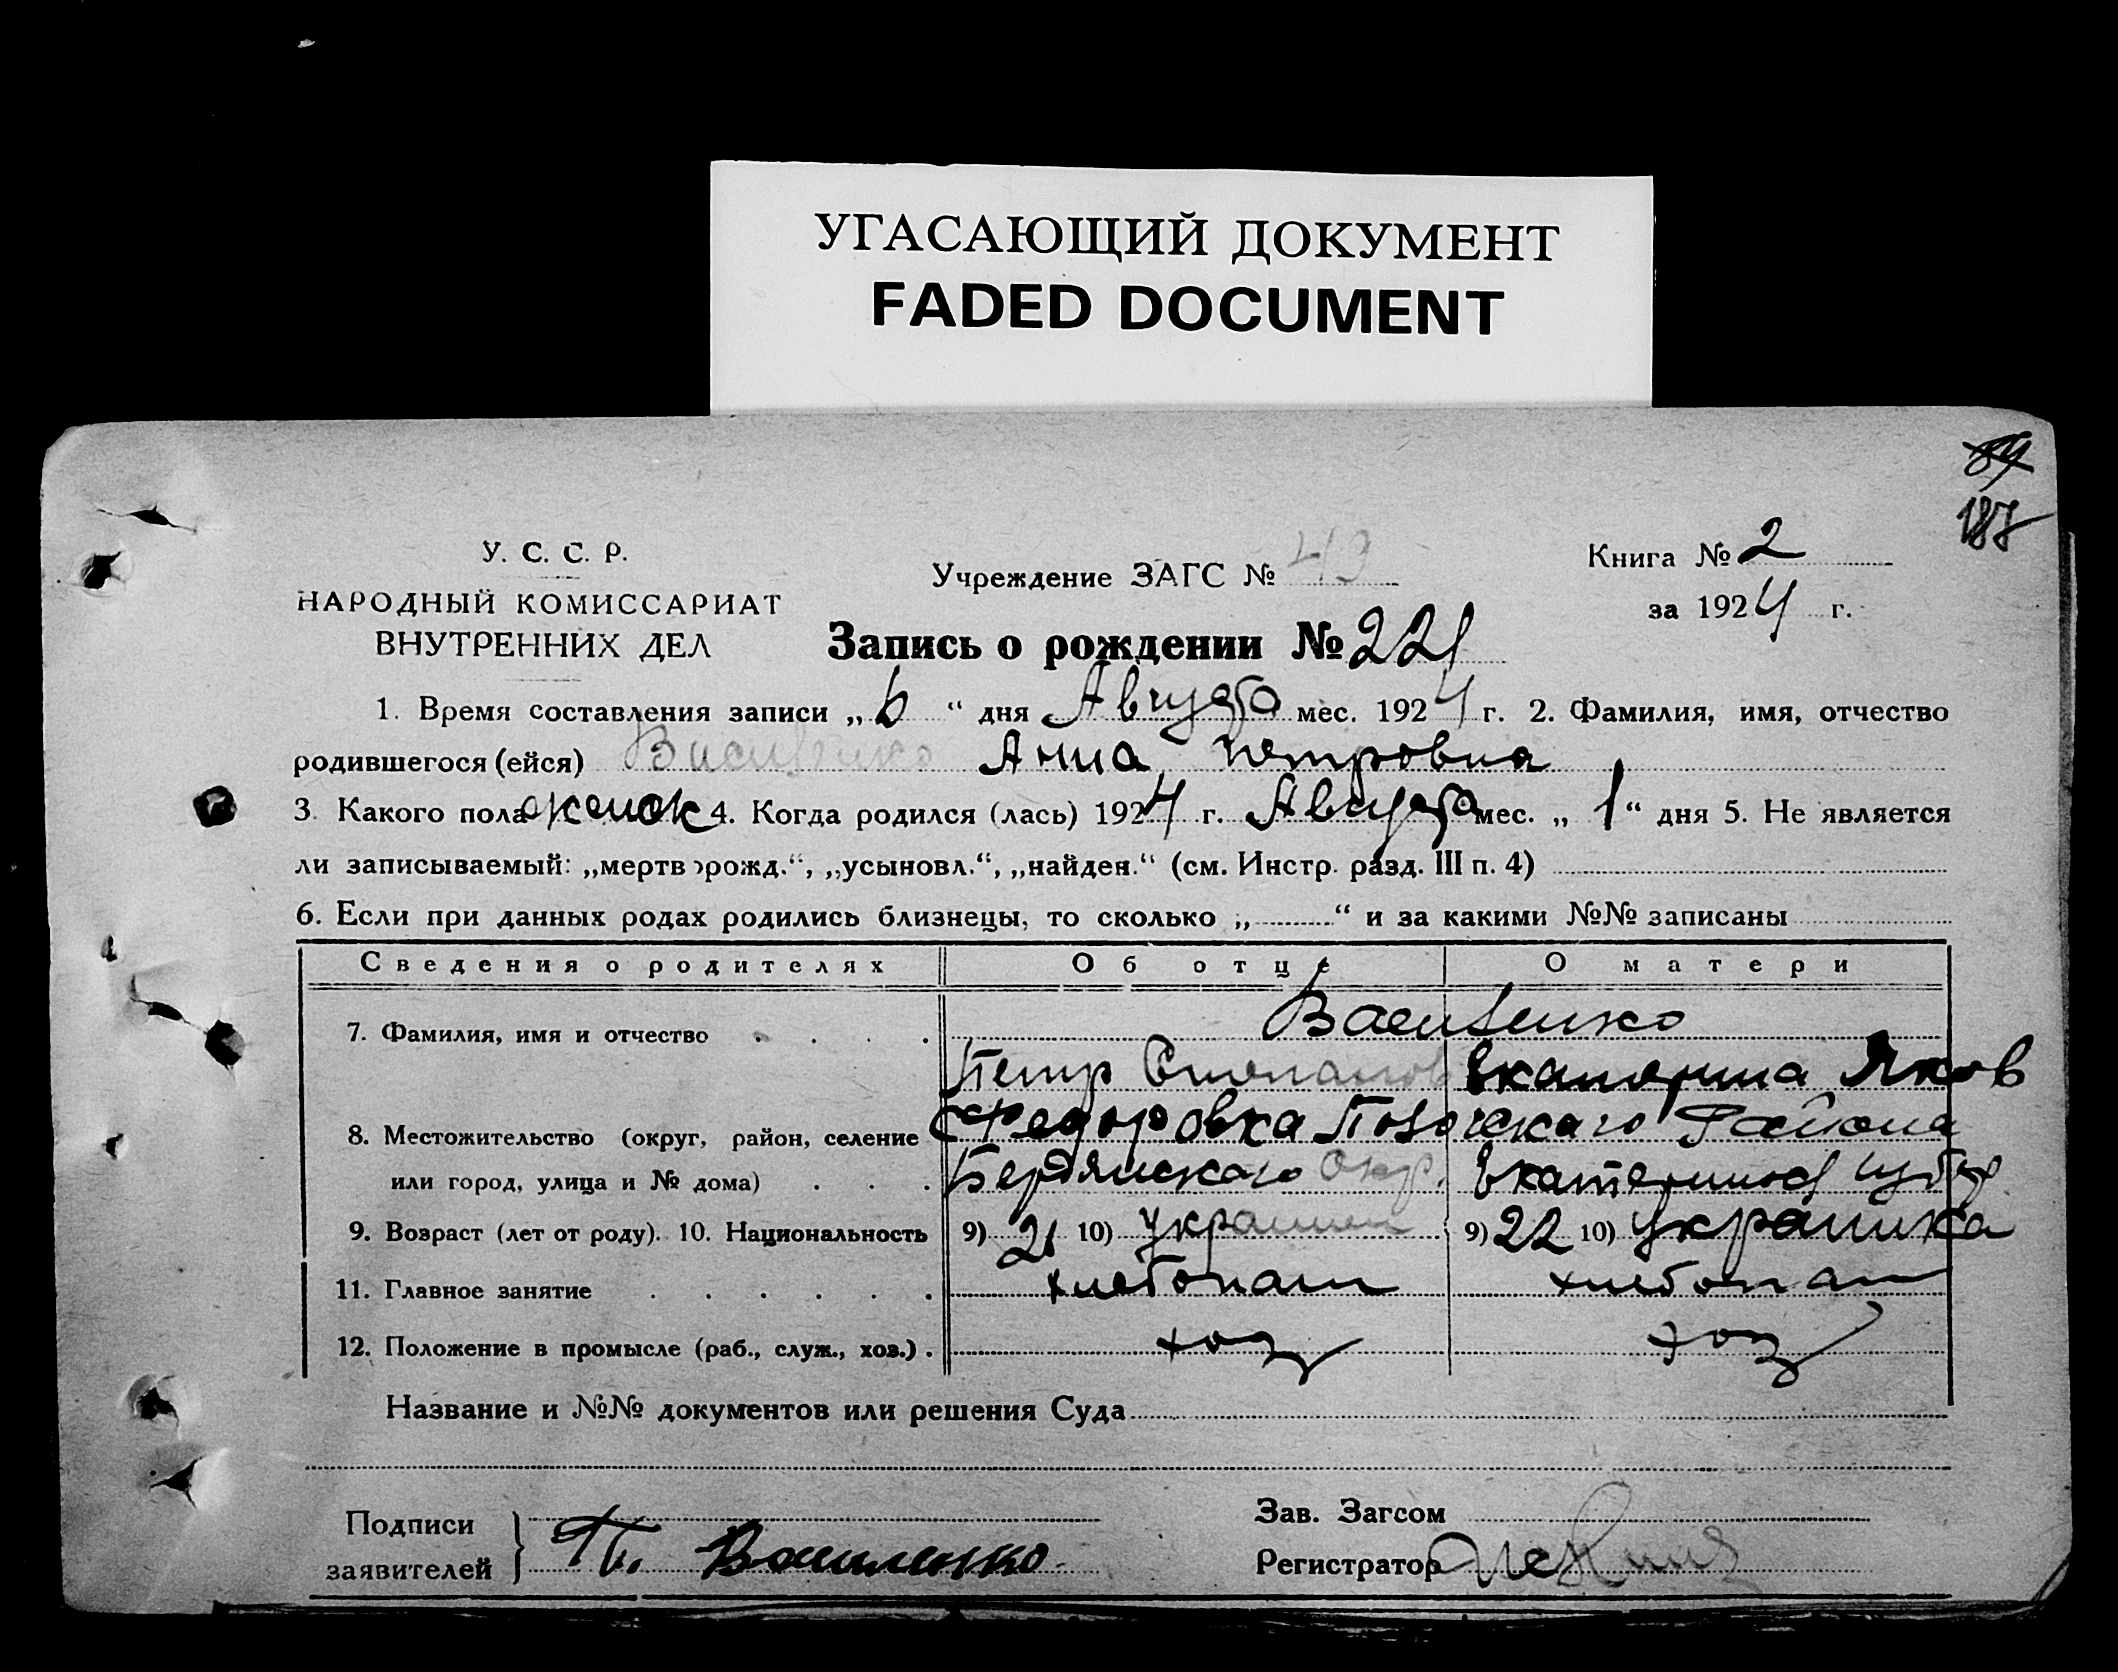 УГАСАЮЩИЙ ДОКУМЕНТ
FADED DOCUMENT
84
187
У. С. С. Р.
НАРОДНЫЙ КОМИССАРИАТ
ВНУТРЕННИХ ДЕЛ
Учреждение ЗАГС № 49
Книга № 2
за 1924 г.
Запись о рождении № 221
1. Время составления записи „6“ дня Августа мес. 1924 г. 2. Фамилия, имя, отчество
родившегося (ейся) Василенко Анна Петровна
3. Какого пола женск 4. Когда родился (лась) 1924 г. Августа мес. „1“ дня 5. Не является
ли записываемый: „мертворожд.“, „усыновл.“, „найден.“ (см. Инстр. разд. III п. 4)
6. Если при данных родах родились близнецы, то сколько „ “ и за какими №№ записаны
Сведения о родителях Об отце О матери
Василенко
7. Фамилия, имя и отчество
Петр Степанов Екатерина Яков
Федоровка Района
8. Местожительство (округ, район, селение
Бердянского Окр. Екатеринос губер
или город, улица и № дома)
9. Возраст (лет от роду). 10. Национальность 9) 21 10) украинец 9) 22 10) украинка
11. Главное занятие хлебопаш хлебопаш
12. Положение в промысле (раб., служ., хоз.) хоз хоз
Название и №№ документов или решения Суда
Подписи
заявителей
П. Василенко
Зав. Загсом
Регистратор